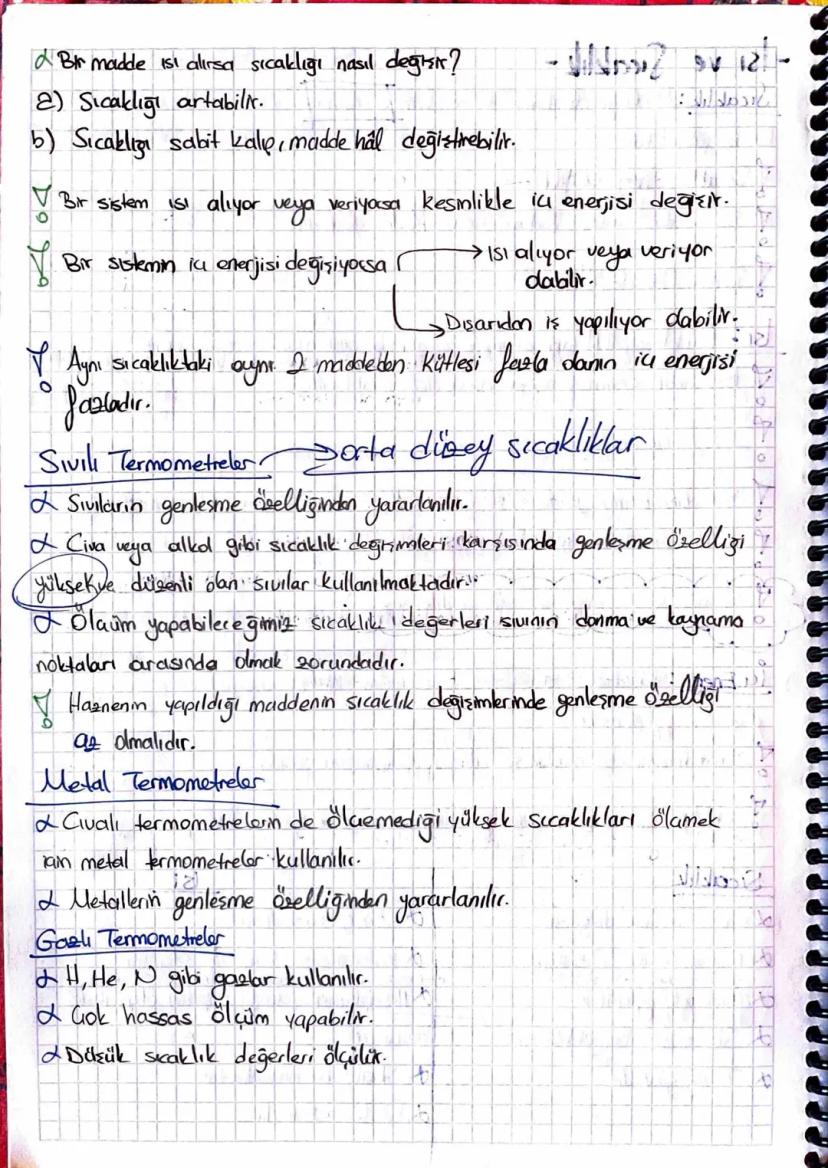 α Bir madde ısı alırsa sıcaklığı nasıl değişir?
a) Sıcaklığı artabilir.
b) Sıcaklığı sabit kalıp, madde hâl değiştirebilir.
! Bir sistem ısı alıyor veya veriyorsa kesinlikle iç enerjisi değişir.
! Bir sistemin iç enerjisi değişiyorsa → Isı alıyor veya veriyor
olabilir.
→ Dışarıdan iş yapılıyor olabilir.
! Aynı sıcaklıktaki aynı 2 maddeden kütlesi fazla olanın iç enerjisi
fazladır.
Sıvılı Termometreler → orta düzey sıcaklıklar
α Sıvıların genleşme özelliğinden yararlanılır.
α Civa veya alkol gibi sıcaklık değişimleri karşısında genleşme özelliği
yüksek ve düzenli olan sıvılar kullanılmaktadır.
α Ölçüm yapabileceğimiz sıcaklık değerleri sıvının donma ve kaynama
noktaları arasında olmak zorundadır.
! Haznenin yapıldığı maddenin sıcaklık değişimlerinde genleşme özelliği
az olmalıdır.
Metal Termometreler
α Cıvalı termometrelerin de ölçemediği yüksek sıcaklıkları ölçmek
için metal termometreler kullanılır.
α Metallerin genleşme özelliğinden yararlanılır.
Gazlı Termometreler
α H, He, N gibi gazlar kullanılır.
α Çok hassas ölçüm yapabilir.
α Düşük sıcaklık değerleri ölçülür.